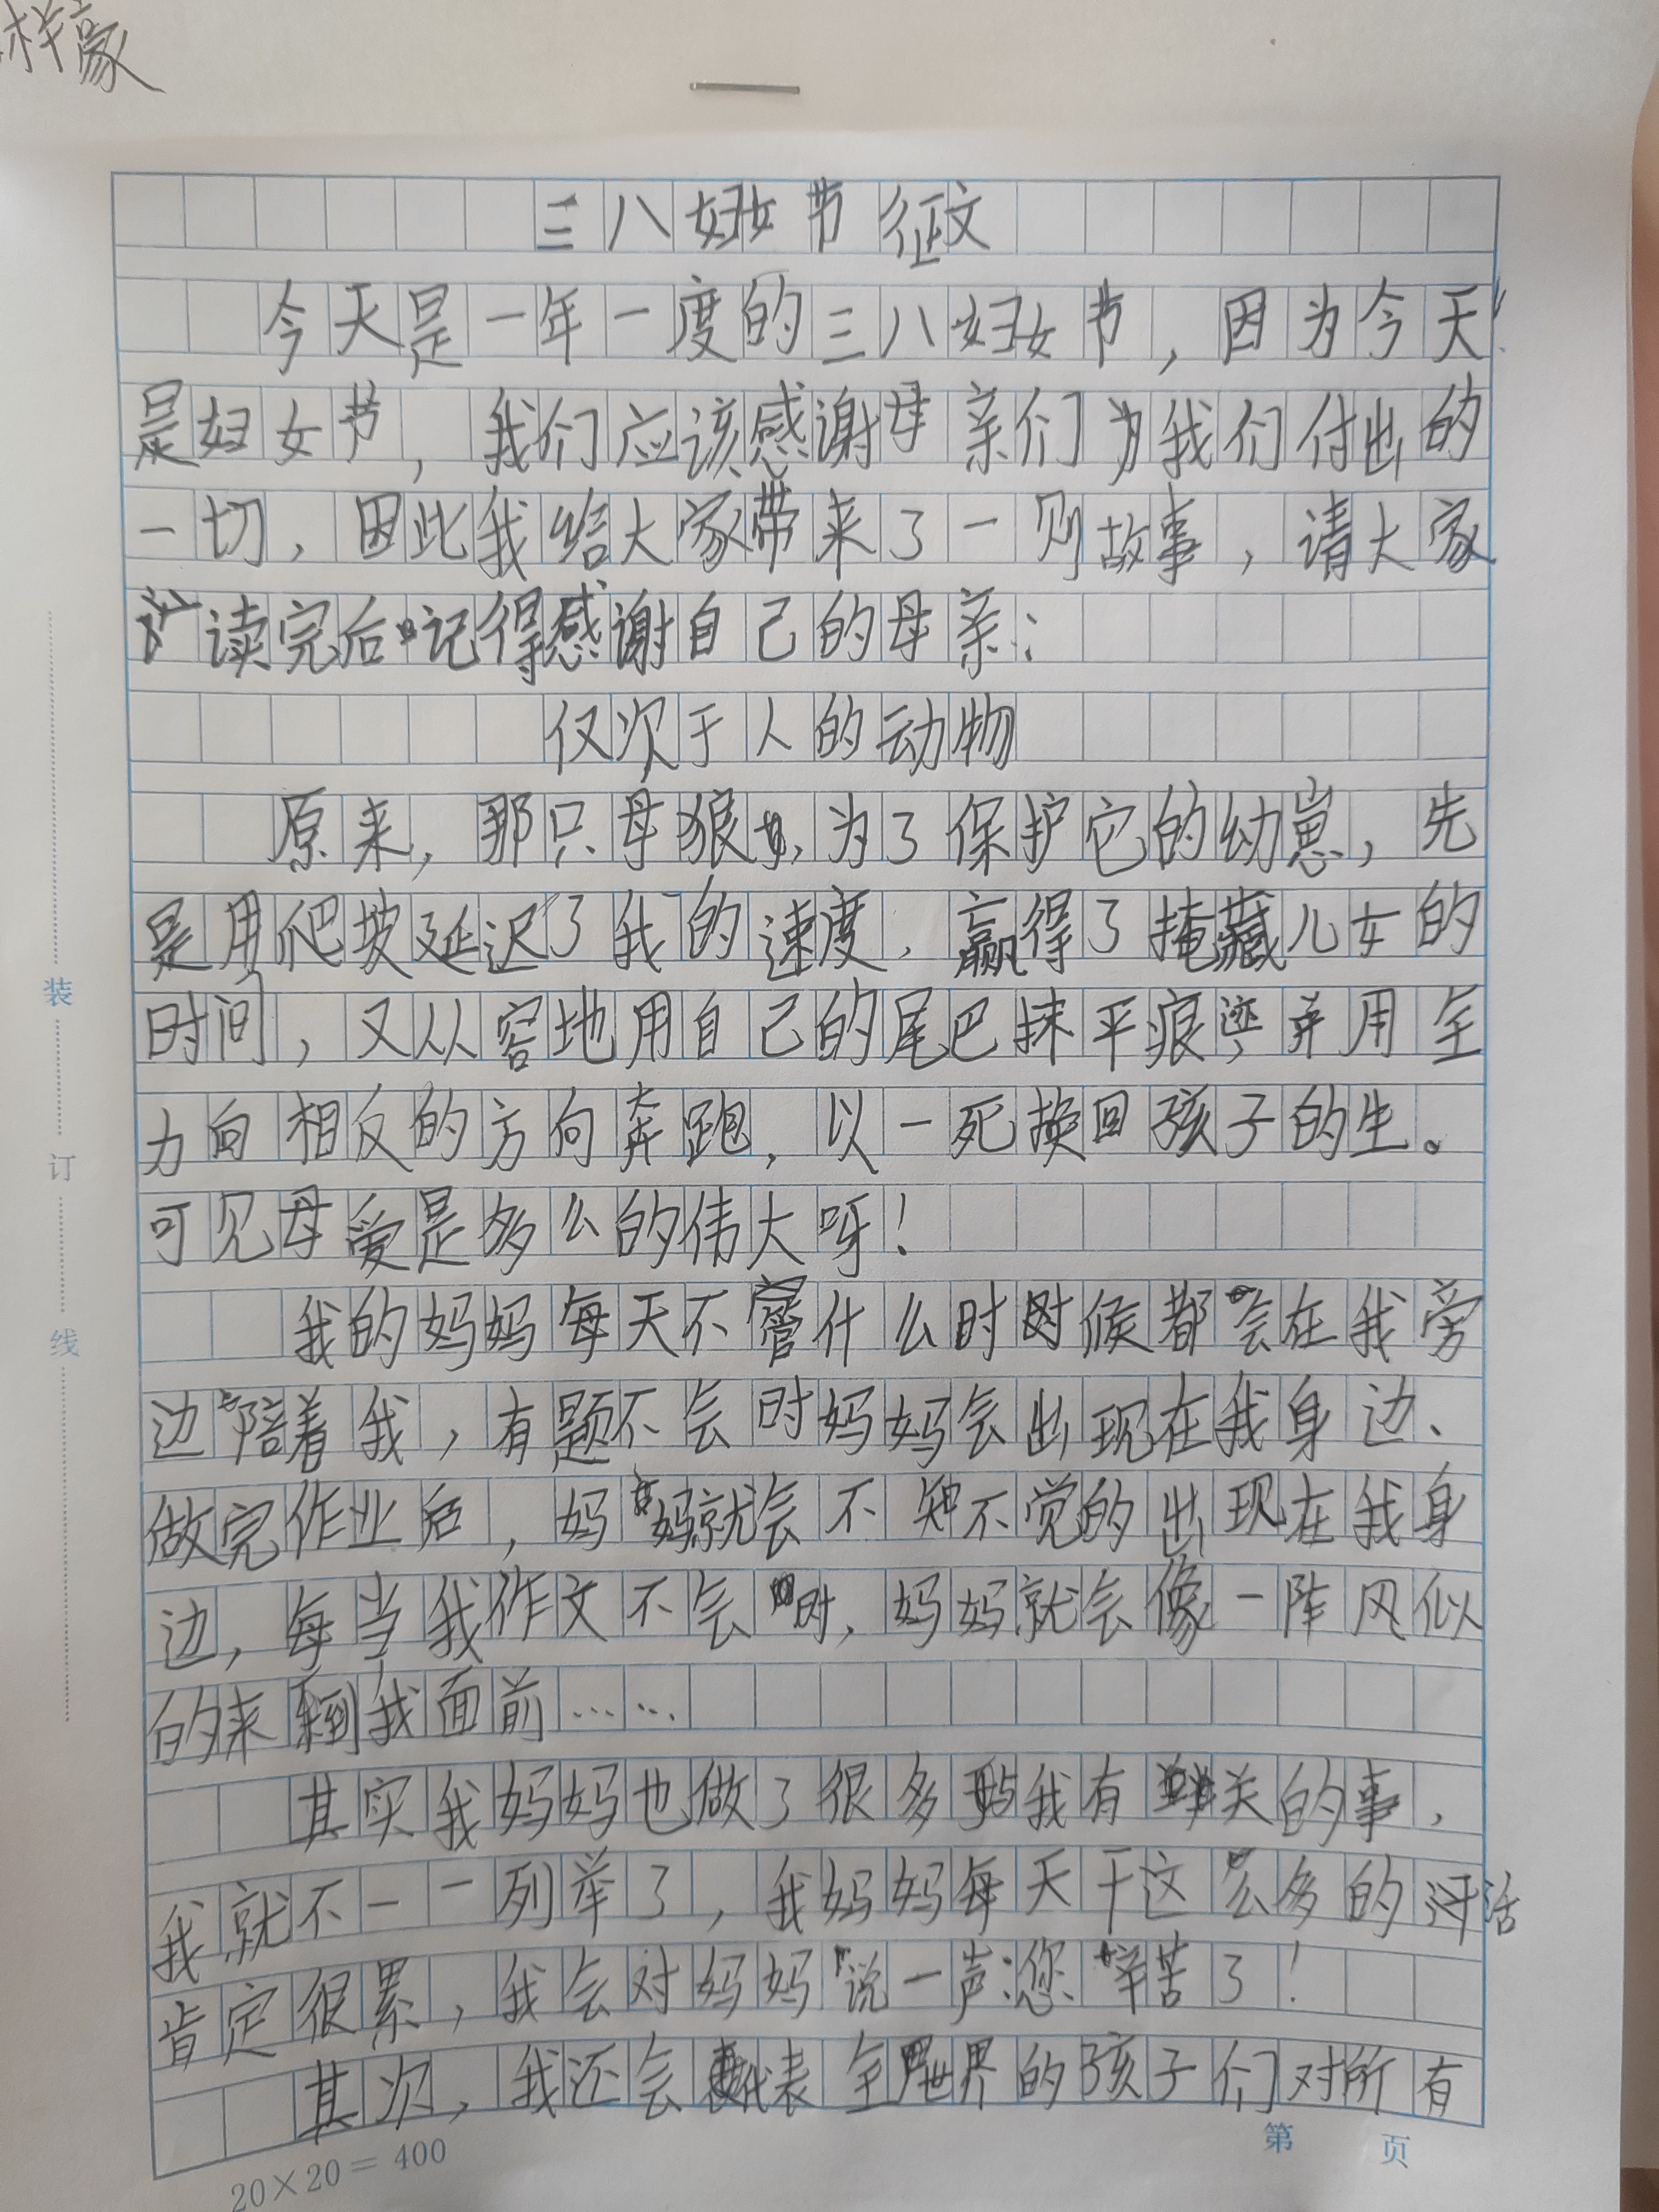 祥豪
三八妇女节征文
今天是一年一度的三八妇女节，因为今天
是妇女节，我们应该感谢母亲们为我们付出的
一切，因此我给大家带来了一则故事，请大家
读完后记得感谢自己的母亲：
仅次于人的动物
原来，那只母狼，为了保护它的幼崽，先
是用爬坡延迟了我的速度，赢得了掩藏儿女的
时间，又从容地用自己的尾巴抹平痕迹，并用全
力向相反的方向奔跑，以一死换回孩子的生。
可见母爱是多么的伟大呀！
我的妈妈每天不管什么时时候都会在我旁
边陪着我，有题不会时妈妈会出现在我身边、
做完作业后，妈妈就会不知不觉的出现在我身
边，每当我作文不会时，妈妈就会像一阵风似
的来到我面前……
其实我妈妈也做了很多跟我有关的事，
我就不一一列举了，我妈妈每天干这么多的活
肯定很累，我会对妈妈说一声：您辛苦了！
其次，我还会代表全世界的孩子们对所有
装
订
线
20×20＝400
第 页